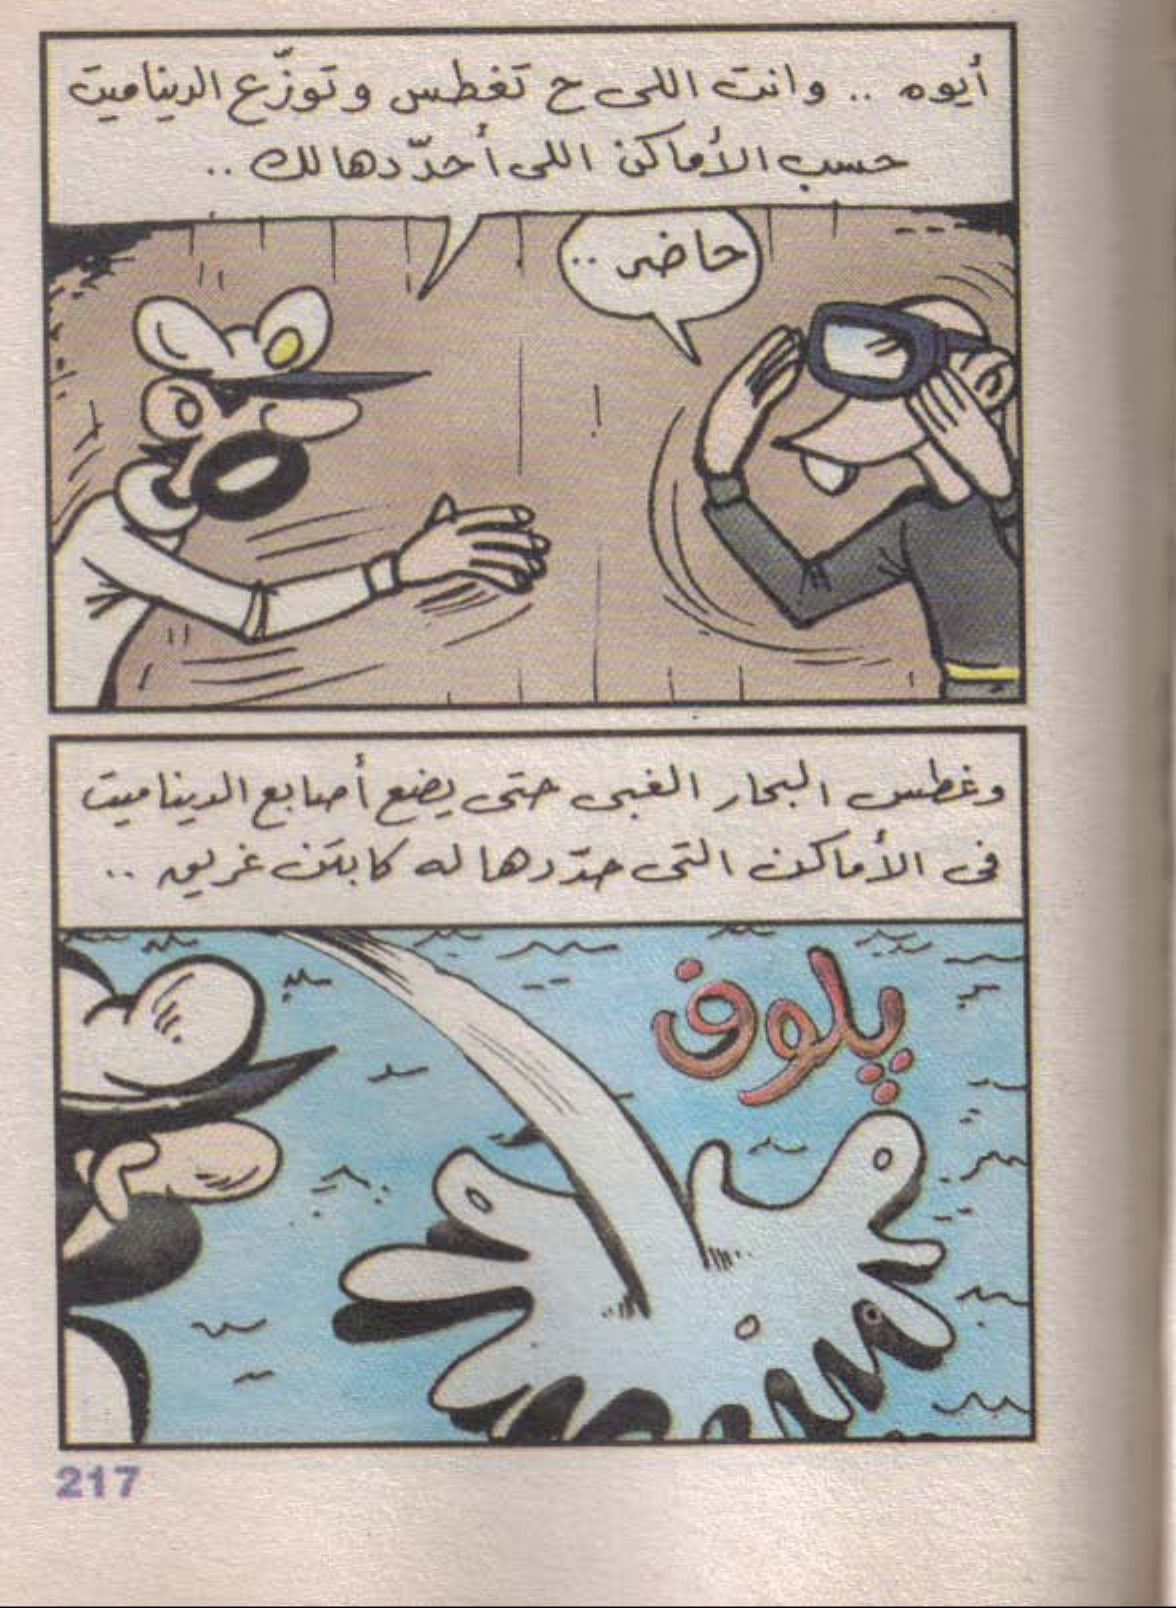 أيوه .. وانت اللى ح تغطس وتوزّع الديناميت
حسب الأماكن اللى أحدّدها لك ..
حاضر ..
وغطس البحار الغبى حتى يضع أصابع الديناميت
فى الأماكن التى حدّدها له كابتن غريق ..
پلوف
217